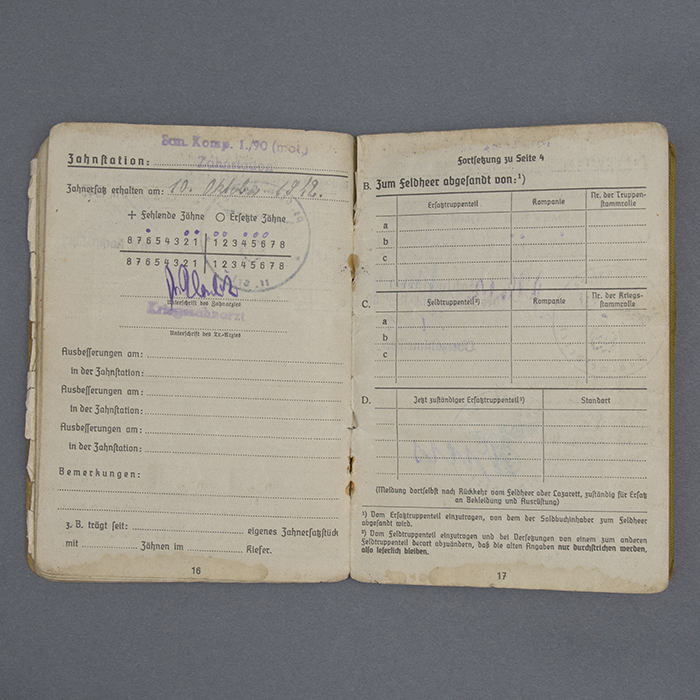 San. Komp. 1./90 (mot.)
Zahnstation:
Zahnstation
Zahnersatz erhalten am: 10. Oktober 1942.
+ Fehlende Zähne ○ Ersetzte Zähne
8 7 6 5 4 3 2 1 | 1 2 3 4 5 6 7 8
8 7 6 5 4 3 2 1 | 1 2 3 4 5 6 7 8
Unterschrift des Zahnarztes
Kriegszahnarzt
Unterschrift des Tr.-Arztes
Ausbesserungen am:
in der Zahnstation:
Ausbesserungen am:
in der Zahnstation:
Ausbesserungen am:
in der Zahnstation:
Bemerkungen:
z. B. trägt seit: eigenes Zahnersatzstück
mit Zähnen im Kiefer.
16
Fortsetzung zu Seite 4
B. Zum Feldheer abgesandt von:¹)
Ersatztruppenteil Kompanie Nr. der Truppen-
stammrolle
a
b
c
C. Feldtruppenteil²) Kompanie Nr. der Kriegs-
stammrolle
a
b
c
D. Jetzt zuständiger Ersatztruppenteil²) Standort
(Meldung dortselbst nach Rückkehr vom Feldheer oder Lazarett, zuständig für Ersatz
an Bekleidung und Ausrüstung)
¹) Vom Ersatztruppenteil einzutragen, von dem der Soldbuchinhaber zum Feldheer
abgesandt wird.
²) Vom Feldtruppenteil einzutragen und bei Versetzungen von einem zum anderen
Feldtruppenteil derart abzuändern, daß die alten Angaben nur durchstrichen werden,
also leserlich bleiben.
17